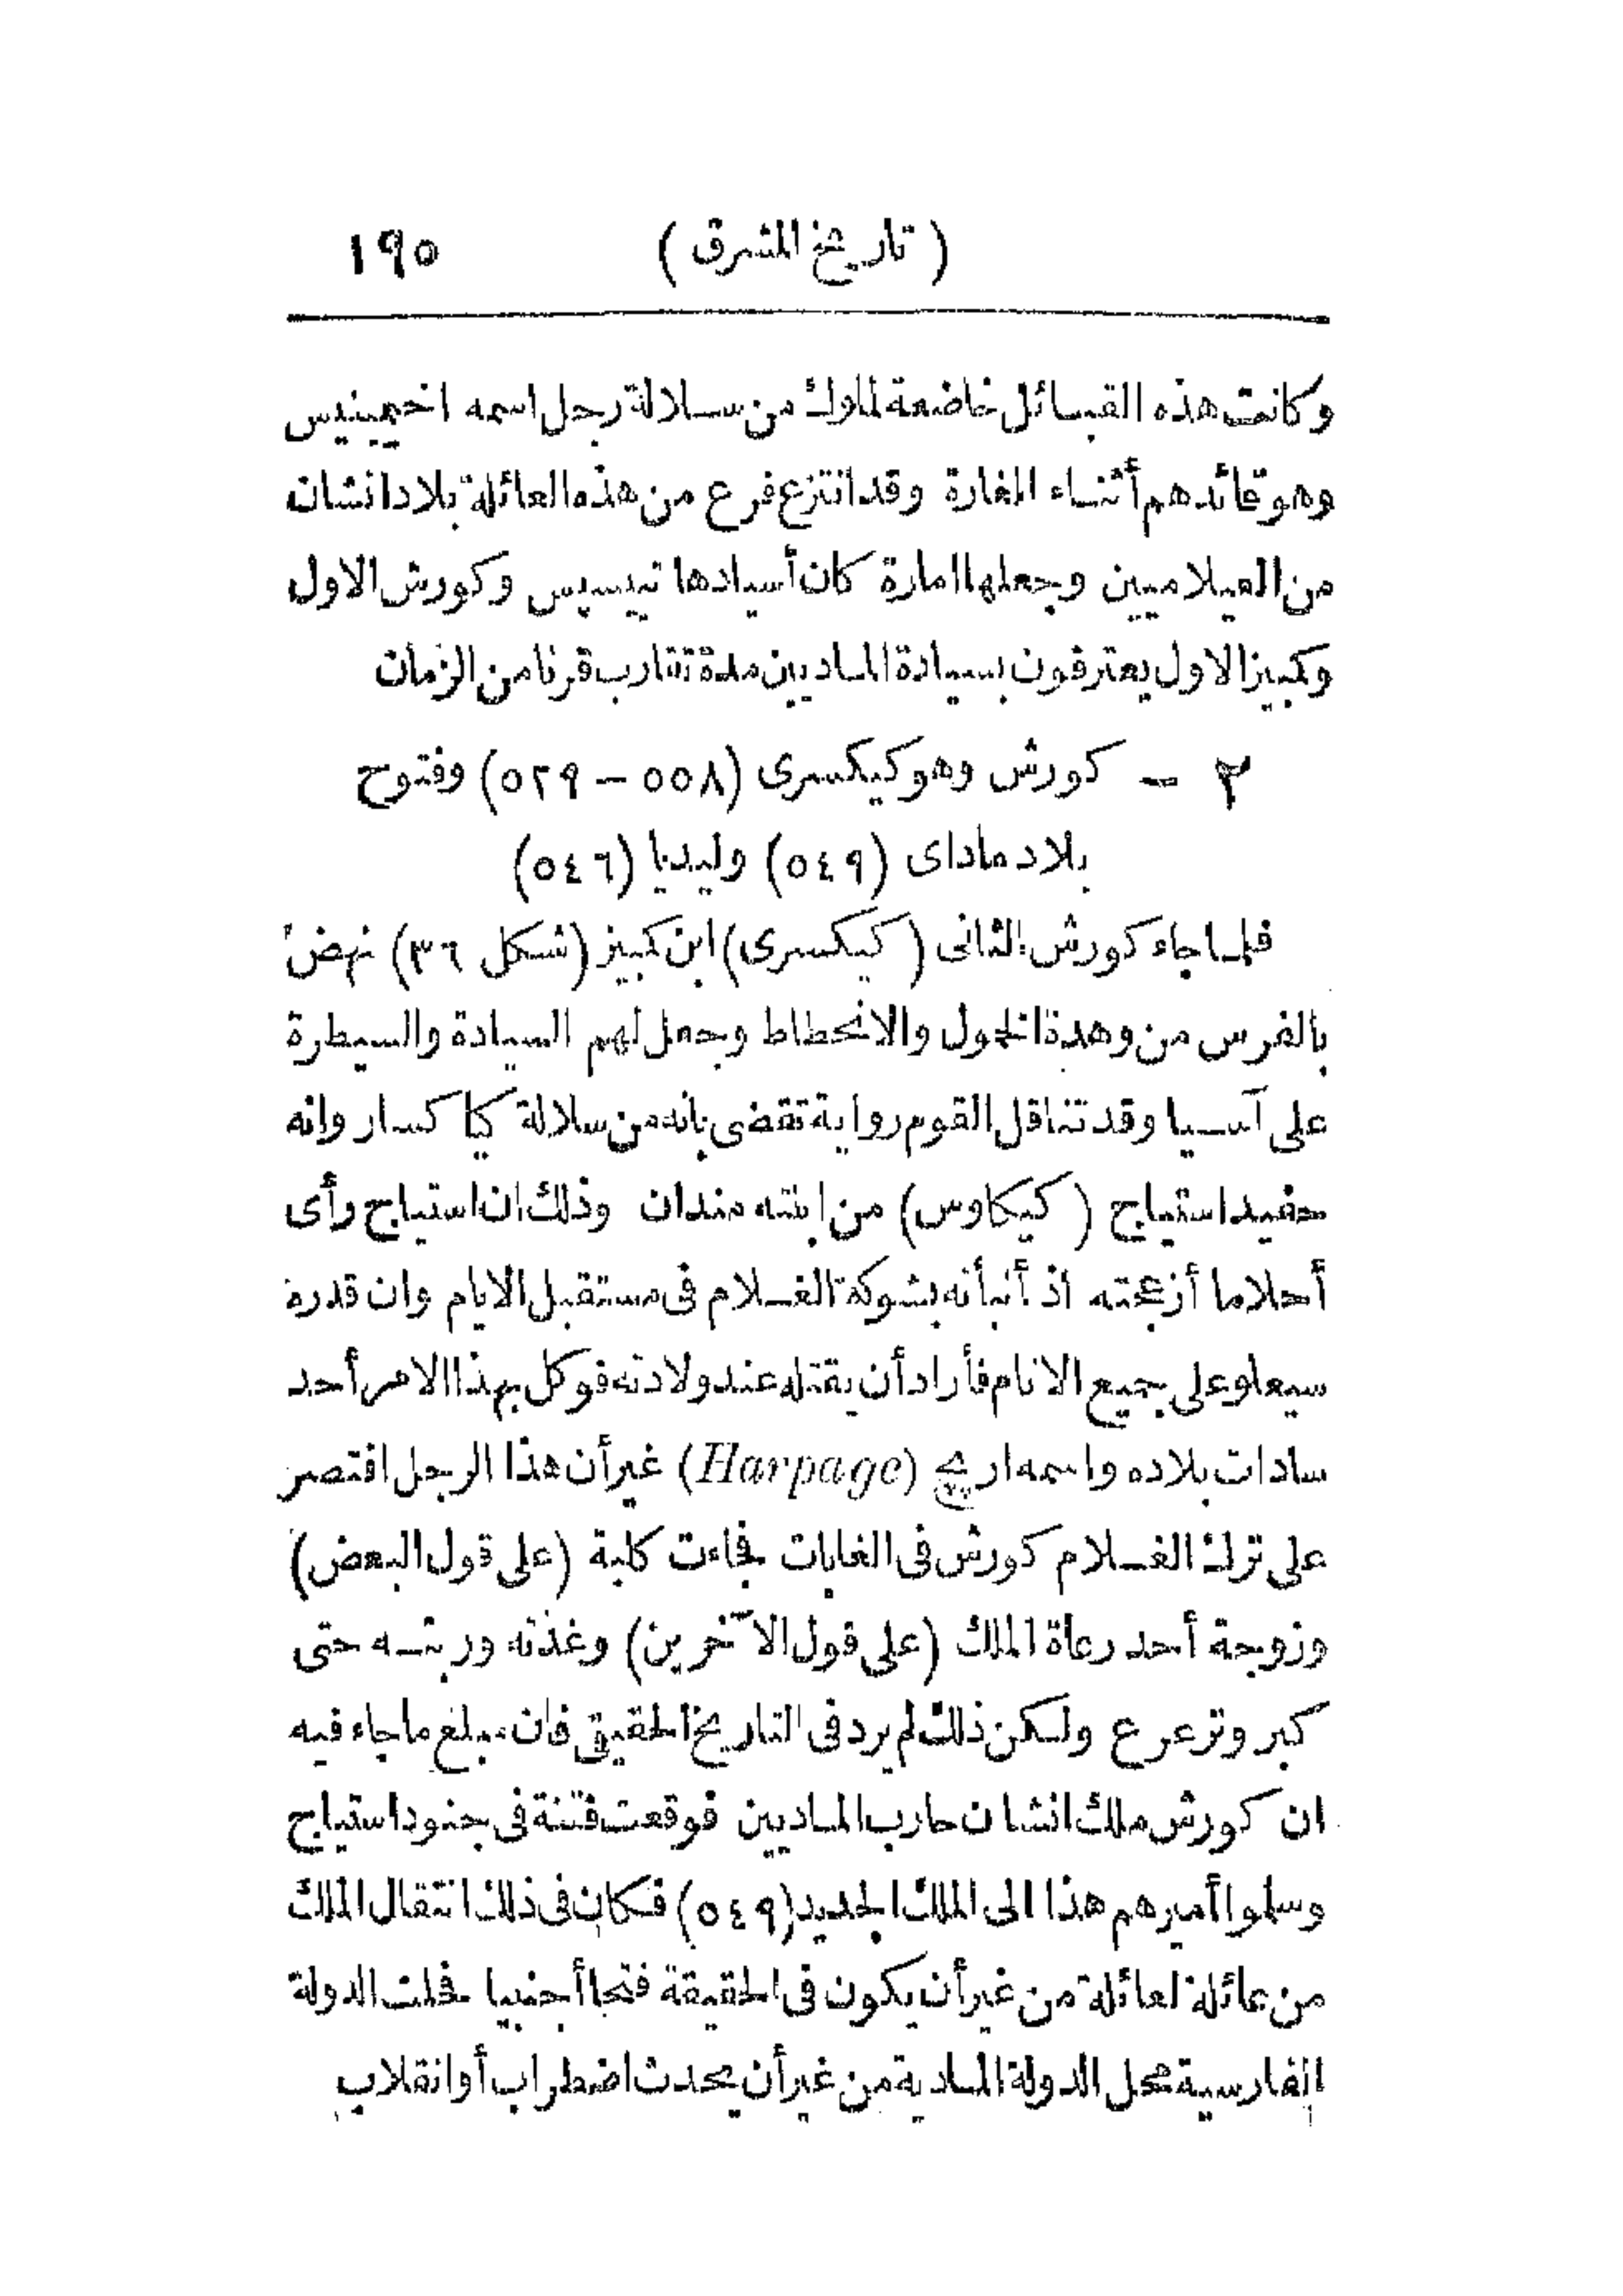 ( تاريخ المشرق ) ١٩٥
وكانت هذه القبائل خاضعة لملوك من سلالة رجل اسمه اخيمينيس
وهو قائدهم أثناء المغارة وقد انتزع فرع من هذه العائلة بلاد انشان
من العيلاميين وجعلها امارة كان أسيادها تيسپس وكورش الاول
وكمبيز الاول يعترفون بسيادة الماديين مدة تقارب قرنا من الزمان
٢ – كورش وهو كيكسرى (٥٥٨ – ٥٢٩) وفتوح
بلاد ماداى (٥٤٩) وليديا (٥٤٦)
فلما جاء كورش الثانى ( كيكسرى) ابن كمبيز (شكل ٣٦) نهض
بالفرس من وهدة الخمول والانحطاط وجعل لهم السيادة والسيطرة
على آسيا وقد تناقل القوم رواية تقضى بانه من سلالة كياكسار وانه
حفيد استياج ( كيكاوس) من ابنته مندان وذلك ان استياج رأى
أحلاما أزعجته اذ أنبأنه بشوكة الغلام فى مستقبل الايام وان قدره
سيعلو على جميع الانام فأراد أن يقتله عند ولادته فوكل بهذا الامر أحد
سادات بلاده واسمه ارپچ (Harpage) غير أن هذا الرجل اقتصر
على ترك الغلام كورش فى الغابات فجاءت كلبة (على قول البعض)
وزوجة أحد رعاة الملك (على قول الآخرين) وغذته وربته حتى
كبر وترعرع ولكن ذلك لم يرد فى التاريخ الحقيقى فان مبلغ ما جاء فيه
ان كورش ملك انشان حارب الماديين فوقعت فتنة فى جنود استياج
وسلموا أميرهم هذا الى الملك الجديد (٥٤٩) فكان فى ذلك انتقال الملك
من عائلة لعائلة من غير أن يكون فى الحقيقة فتحا أجنبيا فحلت الدولة
الفارسية محل الدولة المادية من غير أن يحدث اضطراب أو انقلاب